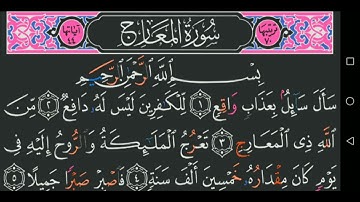 ترتيبها ٧٠ سُورَةُ المَعَارِجِ آياتها ٤٤
بِسْمِ اللَّهِ الرَّحْمَٰنِ الرَّحِيمِ
سَأَلَ سَآئِلُۢ بِعَذَابٍ وَاقِعٍ ١ لِّلْكَٰفِرِينَ لَيْسَ لَهُۥ دَافِعٌ ٢ مِّنَ
ٱللَّهِ ذِى ٱلْمَعَارِجِ ٣ تَعْرُجُ ٱلْمَلَٰٓئِكَةُ وَٱلرُّوحُ إِلَيْهِ فِى
يَوْمٍ كَانَ مِقْدَارُهُۥ خَمْسِينَ أَلْفَ سَنَةٍ ٤ فَٱصْبِرْ صَبْرًا جَمِيلًا ٥